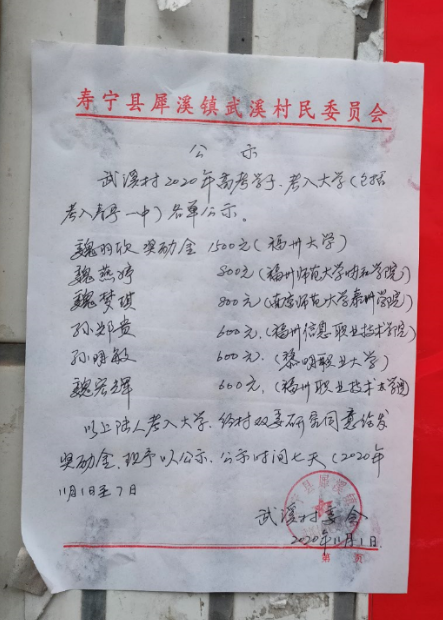 寿宁县犀溪镇武溪村民委员会
公示
武溪村2020年高考学子、考入大学(包括
考入寿宁一中)名单公示。
魏 奖励金 1500元(福州大学)
魏燕婷 800元(福州师范大学协和学院)
魏梦琪 800元(南京师范大学泰州学院)
孙 贵 600元,(福州信息职业技术学院)
孙明敏 600元,(黎明职业大学)
魏宏辉 600元,(福州职业技术
以上陆人考入大学、经村双委研究同意给发
奖励金,现予以公示、公示时间七天(2020年
11月1日至7日
武溪村委会
2020年11月1日
第 页